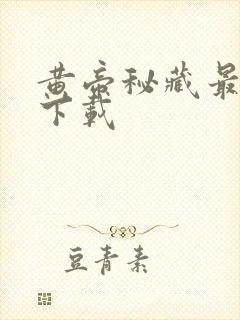 黄帝秘藏最
下载
豆青素